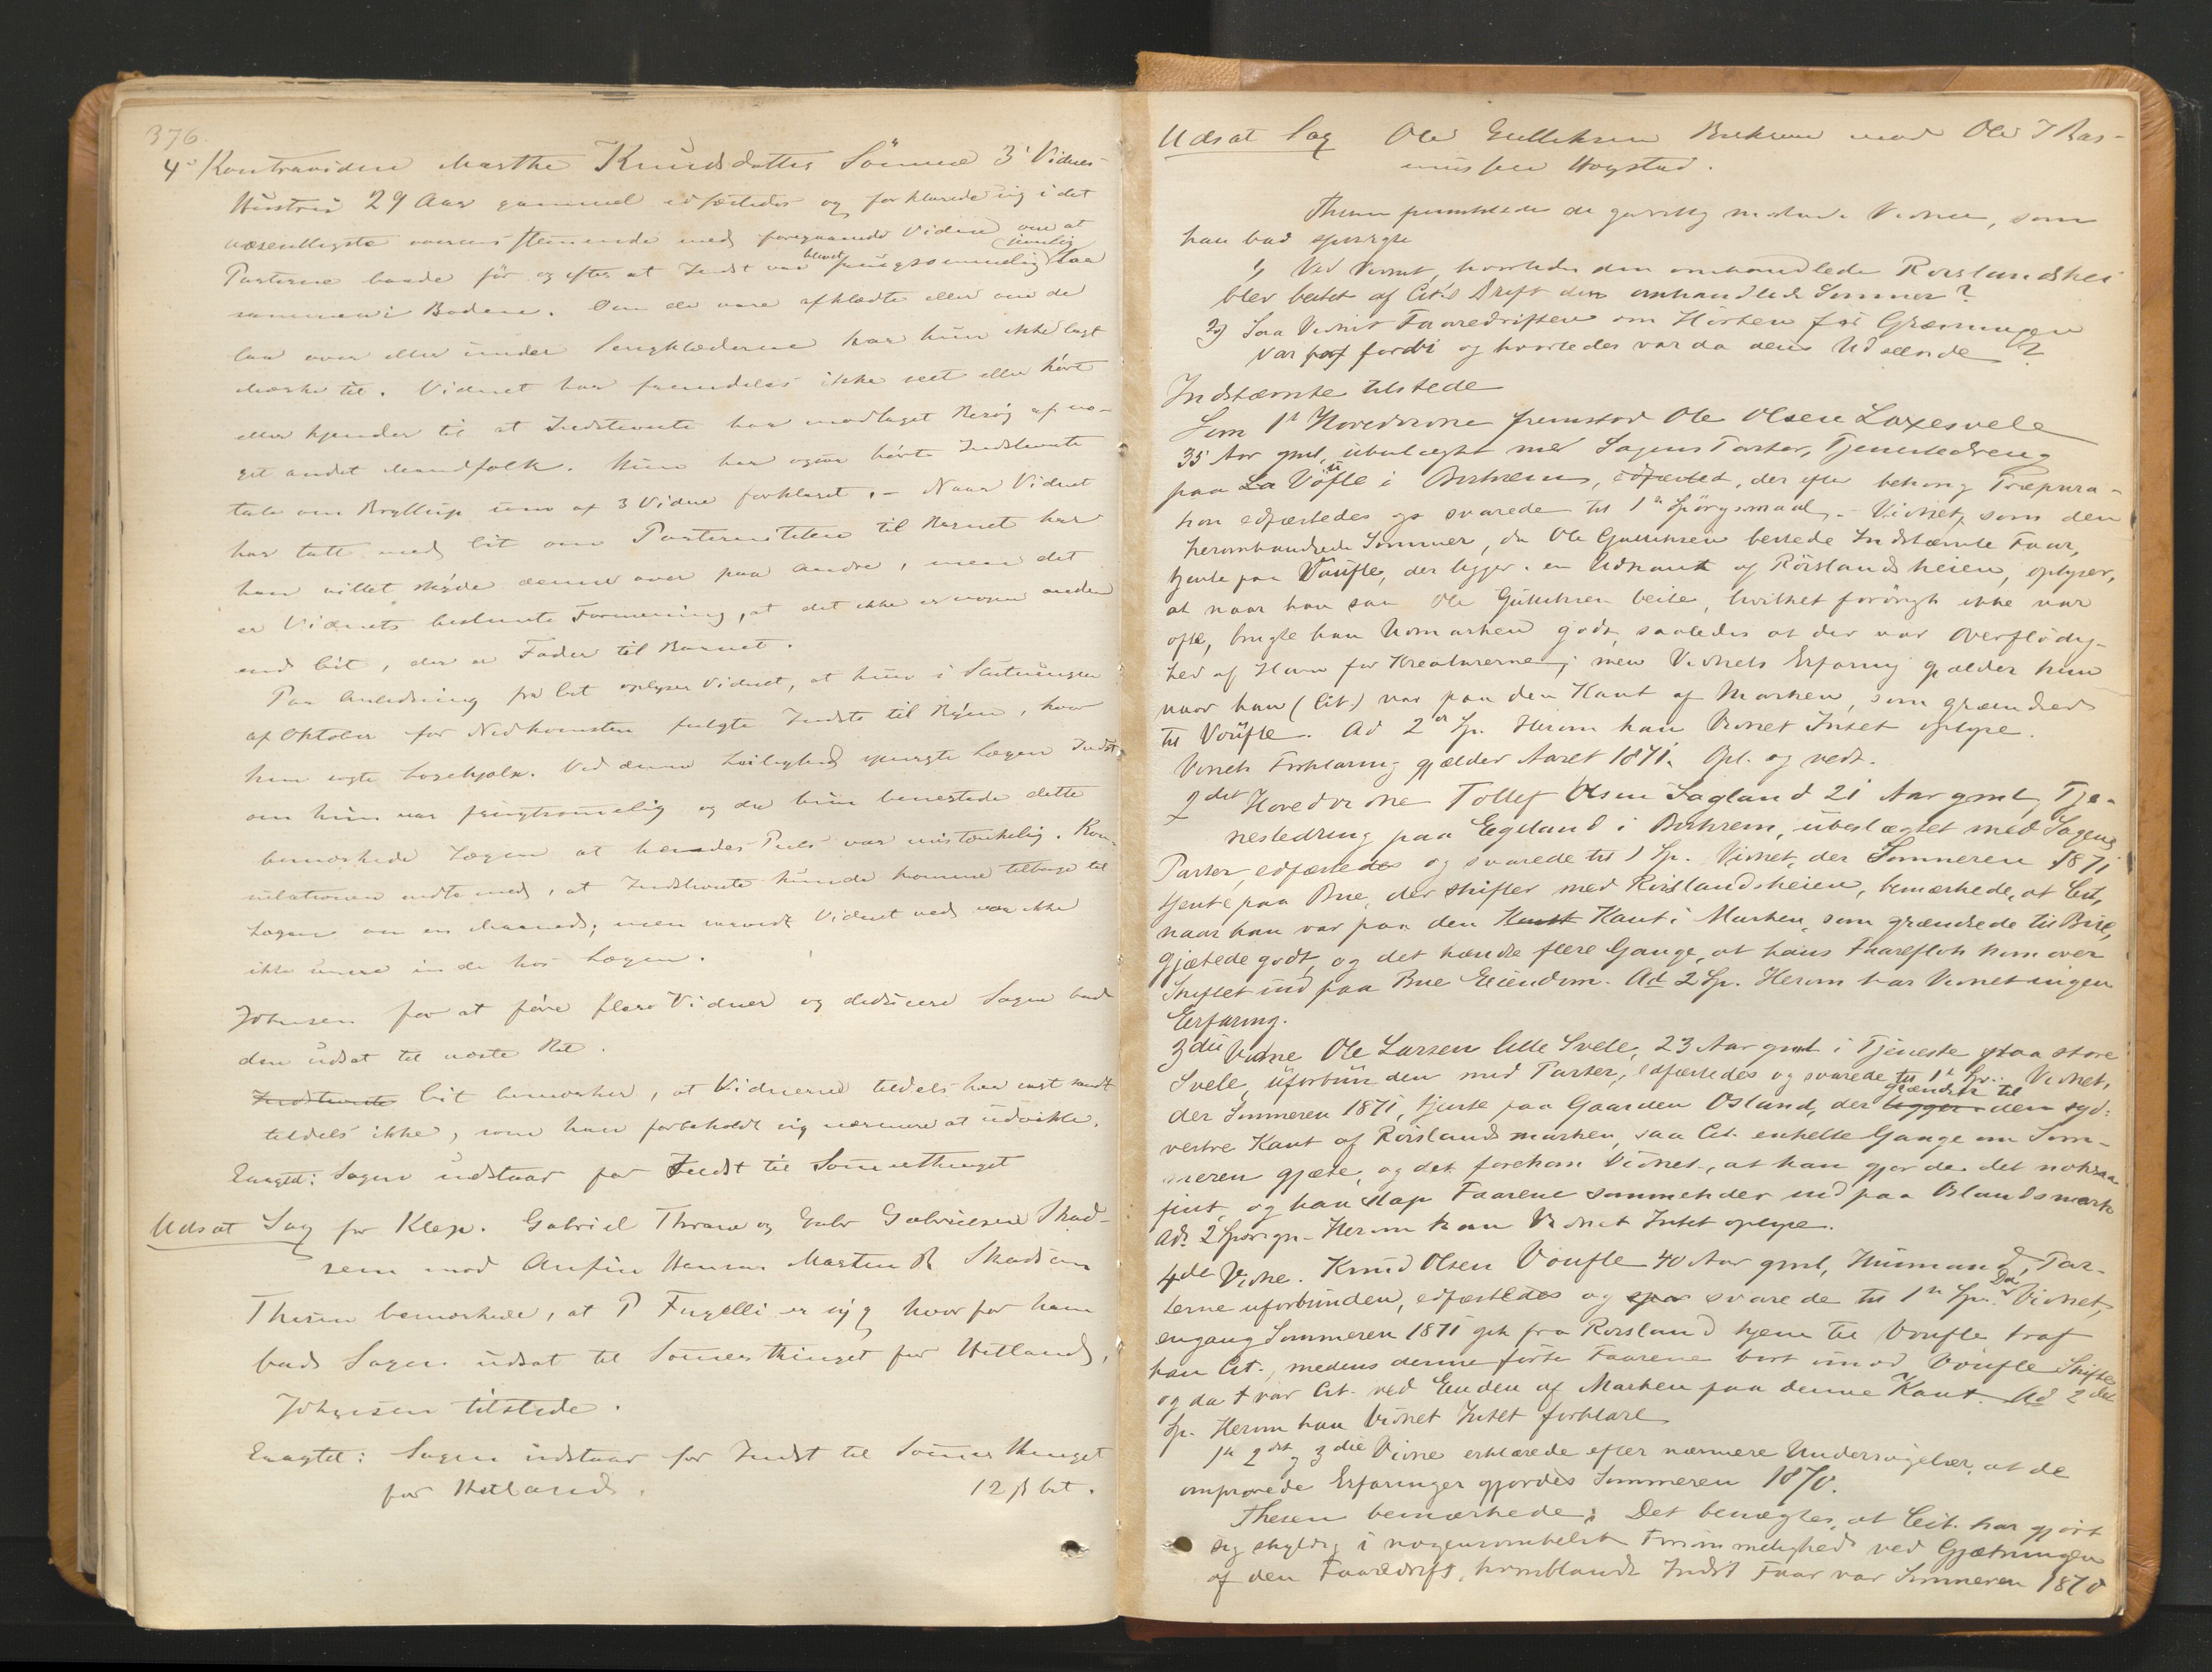 376.
4de Kontravidne Marthe Knudsdatter Sømme 3' Vidnes
Hustru 29 Aar gammel edfæstedes og forklarede sig i det
væsentligste overensstemmende med foregaaende Vidne om at
Parterne baade før og efter at Indst var blevet frugtsommelig jevnlig laa
sammen i Boden. Om de vare afklædte eller om de
laa over eller under Sengklæderne har hun ikke lagt
Mærke til. Vidnet har fremdeles ikke seet eller hørt
eller kjender til at Indstevnte har modtaget Besøg af no-
get andet Mandfolk. Hun har ogsaa hørt Indstevnte
tale om Bryllup som af 3 Vidne forklaret. – Naar Vidnet
har talt med Cit om Paterniteten til Barnet har
han villet skyde denne over paa andre, men det
er Vidnets bestemte Formening, at det ikke er nogen anden
end Cit, der er Fader til Barnet.
Paa Anledning fra Cit oplyser Vidnet, at hun i Slutningen
af Oktober før Nedkomsten fulgte Indste til Byen, hvor
hun søgte Lægehjælp. Ved denne Leilighed spurgte Lægen Indst
om hun var frugtsommelig og da hun benegtede dette
bemærkede Lægen at hendes Puls var mistænkelig. Kon-
sulationen endte med, at Indstevnte kunde komme tilbage til
Lægen om en Maaned; men saavidt Vidnet ved var hun
ikke mere inde hos Lægen.
Johnsen for at føre flere Vidner og deducere Sagen bad
den udsat til næste Ret.
Indstevnte Cit bemærker, at Vidnerne tildels har sagt sandt
tildels ikke, som han forbeholdt sig nærmere at udvikle.
Eragtet: Sagen udstaar for Indst til Sommerthinget
Udsat Sag for Klep. Gabriel Thrane og Gabrielsen Skad-
sem mod Anfin Hansen Marten R Skadsem
Thesen bemærkede, at P Fugelli er syg hvorfor han
bad Sagen udsat til Sommerthinget for Hetland,
Johnsen tilstede.
Eragtet: Sagen udstaar for Indst til Sommerthinget
for Hetland. 12 ß bet.
Udsat Sag Ole Gulliksen Birkrem mod Ole T Ras-
mussen Hogstad.
Thesen fremstillede de godvillig mødende Vidner, som
han bad spurgte
1) Ved Vidnet, hvorledes den omhandlede Rorslandshei
blev beitet af Cit's Drift den omhandlede Sommer?
2) Saa Vidnet Faaredriften om Høsten før Græsningen
var forbi og hvorledes var da dens Udseende?
Indstævnte tilstede
Som 1te Hovedvidne fremstod Ole Olsen Laxesvele
35 Aar gml, ubeslægtet med Sagens Parter, Tjenestedreng
paa La Voufle i Birkrem, edfæstet, der efter behørig Præpara-
tion edfæstedes og svarede til 1te Spørgsmaal. – Vidnet, som den
heromhandlede Sommer, da Ole Gulliksen beitede Indstævnte Faar,
tjente paa Voufle, der ligger i en Udkant af Rorslandsheien, oplyser,
at naar han saa Ole Gulliksen beite, hvilket forøvrigt ikke var
ofte, brugte han Udmarken godt, saaledes at der var Overflødig-
hed af Havn for Kreaturerne; men Vidnets Erfaring gjælder kun
naar han (Cit) var paa den Kant af Marken, som grændsed
til Voufle. Ad 2det Sp. Herom kan Vidnet Intet oplyse.
Vidnets Forklaring gjælder Aaret 1871. Opl. og vedt.
2det Hovedvidne Tollef Olsen Sagland 21 Aar gml, Tje-
nestedreng paa Eegeland i Birkrem, ubeslægtet med Sagens
Parter, edfæstedes og svarede til 1 Sp. Vidnet, der Sommeren 1871
tjente paa Bue, der skifter med Rorslandsheien, bemærkede, at Cit,
naar han var paa den Kant Kant i Marken, som grændsede til Bue,
gjætede godt, og det hændte flere Gange, at hans Faareflok kom over
Skiftet ind paa Bue Eiendom. Ad 2 Sp. Herom har Vidnet ingen
Erfaring.
3die Vidne Ole Larsen lille Svele, 23 Aar gml i Tjeneste paa store
Svele, uforbunden med Parter, edfæstedes og svarede til 1te Sp. Vidnet,
der Sommeren 1871, tjente paa Gaarden Osland, der ligger grændser til den syd-
vestre Kant af Rorslandsmarken, saa Cit. enkelte Gange om Som-
meren gjæte, og det forekom Vidnet, at han gjorde det noksaa
pent, og han slap Faarene sommetider ind paa Oslandsmark
Ad. 2 Spørgs. – Herom kan Vidnet Intet oplyse.
4de Vidne. Knud Olsen Voufle 40 Aar gml, Husmand, Par-
terne uforbunden, edfæstedes og svarede til 1te Sp. Da Vidnet,
engang Sommeren 1871 gik fra Rorsland hjem til Voufle traf
han Cit., medens denne førte Faarene bort imod Voufle Skifte
og da var Cit. ved Enden af Marken paa denne Kant. Ad 2det
Sp. Herom kan Vidnet Intet forklare
1te 2det og 3die Vidne erklærede efter nærmere Undersøgelser, at de
omprovede Erfaringer gjordes Sommeren 1870.
Thesen bemærkede: Det benægtes, at Cit. har gjort
sig skyldig i nogensomhelst Forsømmelighed ved Gjætningen
af den Faaredrift, hvoriblandt Indst Faar var Sommeren 1870